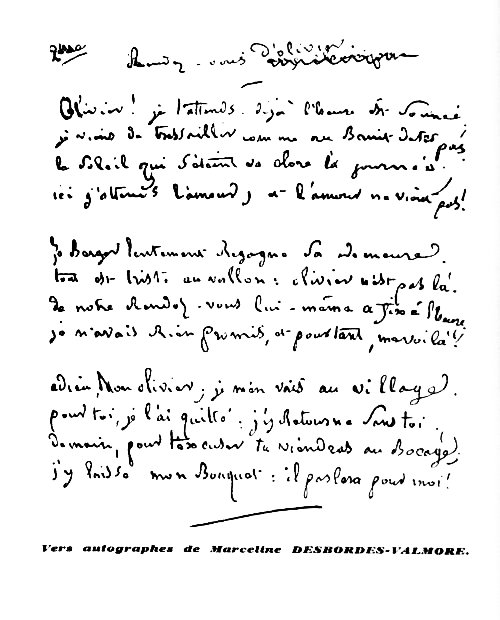 2me
Rendez-vous d'olivier
Olivier! je t'attends. déjà l'heure est sonnée.
je viens de tressaillir comme au Bruit de tes pas!
le soleil qui s'éteint va clore la journée.
ici j'attends l'amour, et l'amour ne vient pas!
le Berger lentement Regagne sa demeure.
tout est triste au vallon: olivier n'est pas là.
de notre Rendez-vous lui-même a fixé l'heure.
je n'avais Rien promis, et pourtant, me voilà!
adieu, Mon olivier; je m'en vais au village.
pour toi, je l'ai quitté: j'y Retourne sans toi.
demain, pour t'excuser tu viendras au Bocage;
j'y laisse mon Bouquet: il parlera pour moi!
Vers autographes de Marceline DESBORDES-VALMORE.